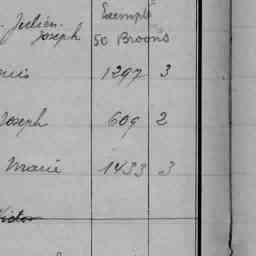 Exempté
Julien
Joseph 50 Broons
ouis 1297 3
Joseph 609 2
Marie 1433 3
Victor